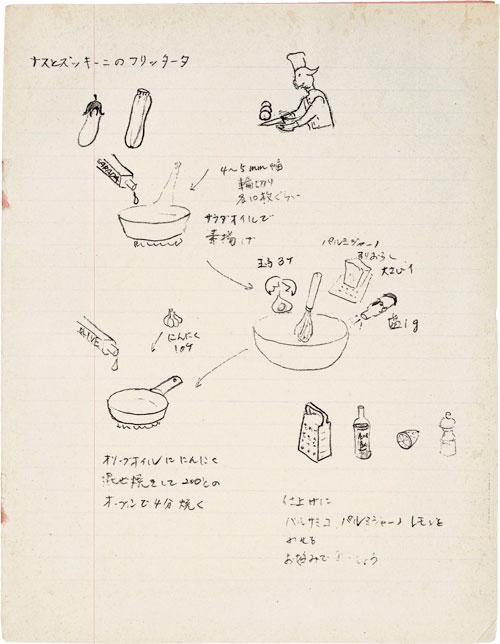 ナスとズッキーニのフリッタータ
SARADA
4〜5mm幅
輪切り
各10枚ぐらい
サラダオイルで
素揚げ
玉子3ケ
パルミジャーノ
すりおろし
大さじ1
塩1g
OLIVE
にんにく
1ケ
オリーブオイルににんにく
混ぜ焼をして200℃の
オーブンで4分焼く
仕上げに
バルサミコ、パルミジャーノ レモンと
わせる
お好みで こしょう